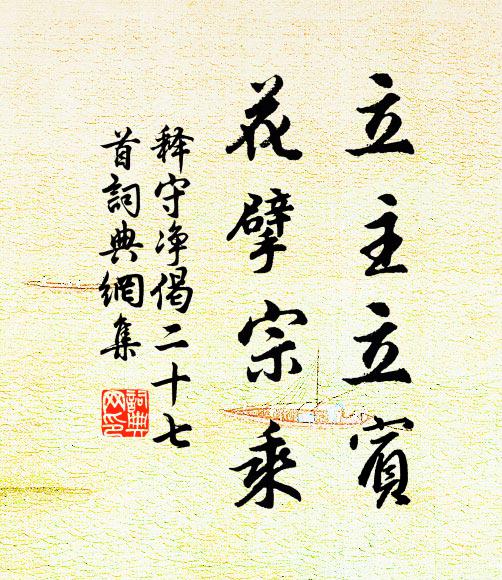 立主立賓
花擘宗乘
释守净偈二十七
首詞典網集
詞典
网印